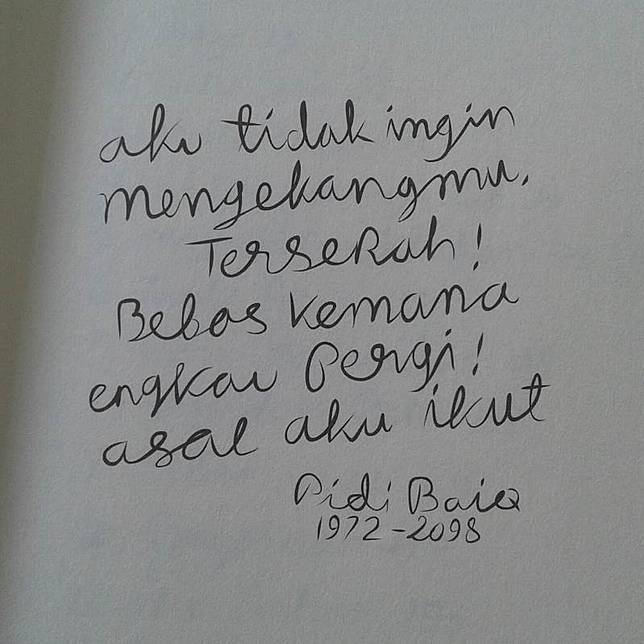 aku tidak ingin
mengekangmu.
Terserah!
Bebas kemana
engkau Pergi!
asal aku ikut
Pidi Baiq
1972-2098